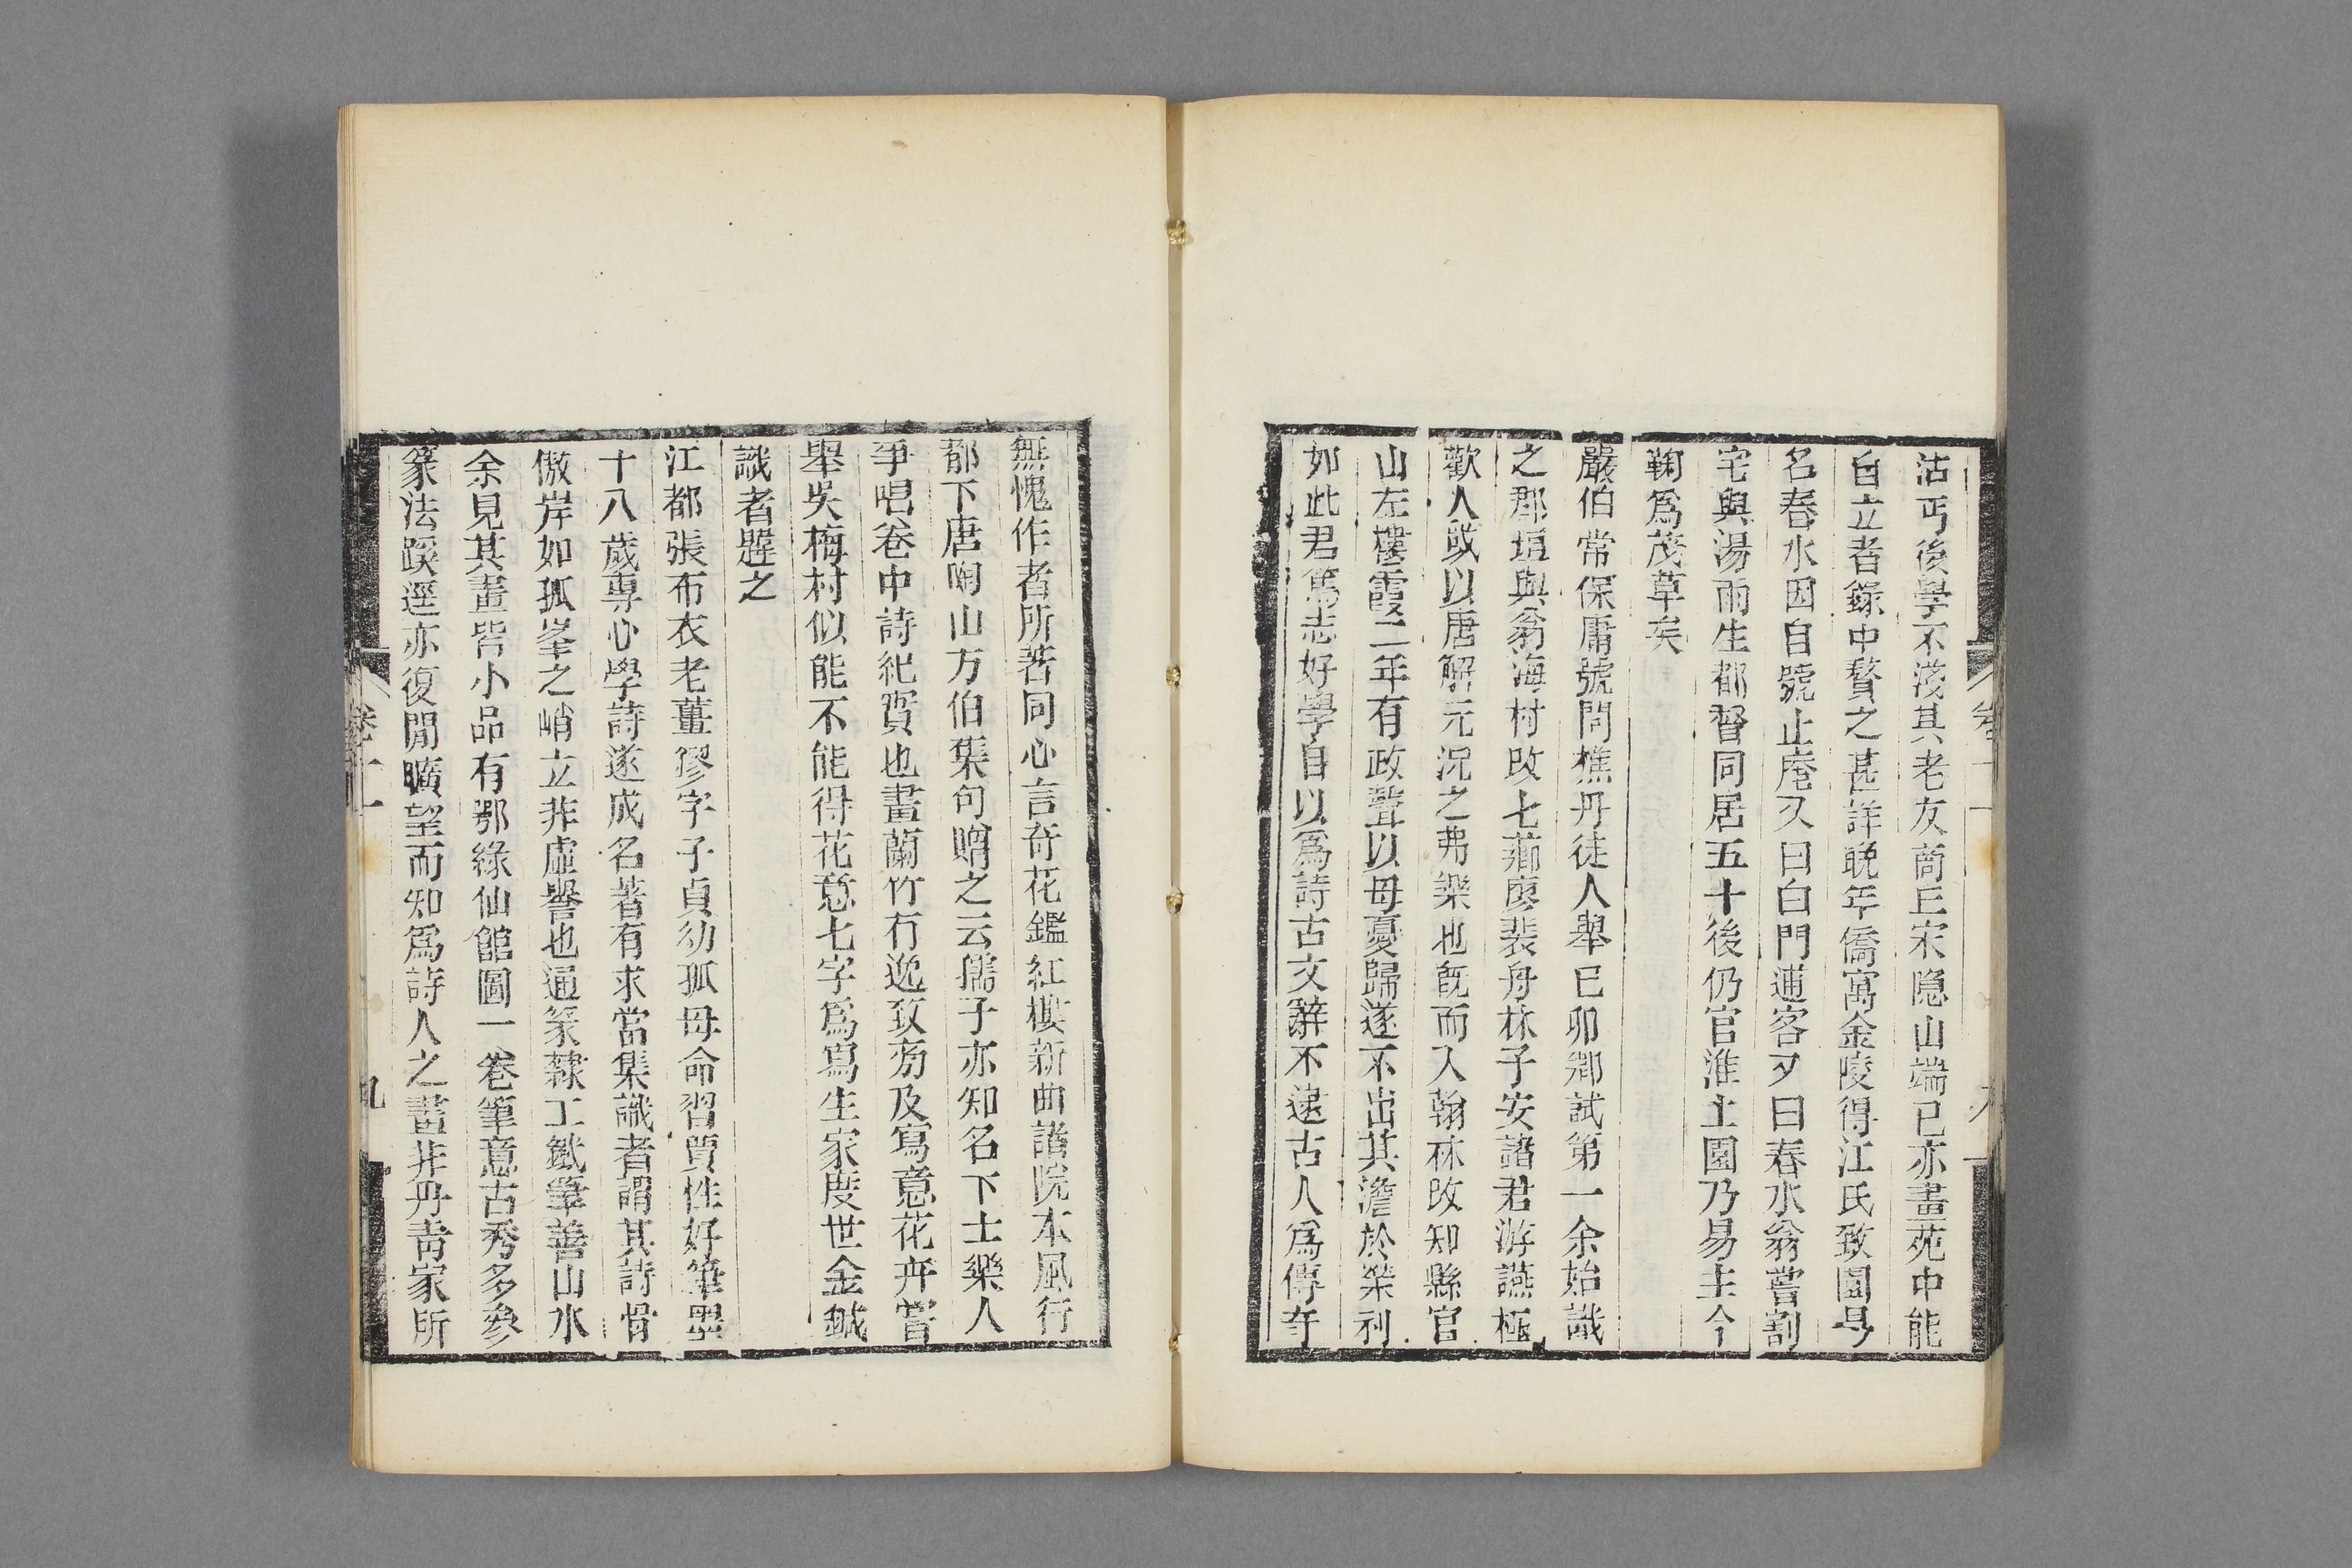 沽丐後學不淺其老友商丘宋隐山端己亦畫苑中能
自立者錄中贅之甚詳晚年僑寓金陵得江氏致園易
名春水因自號止庵又曰白門逋客又曰春水翁嘗割
宅與湯雨生都督同居五十後仍官淮土園乃易主今
鞠爲茂草矣
嚴伯常保庸號問樵丹徒人舉已卯鄉試第一余始識
之郡垣與翁海村改七薌廖裴舟林子安諸君游讌極
歡人或以唐解元況之弗樂也旣而入翰林改知縣官
山左樓霞二年有政聲以母憂歸遂不出其澹於榮利
如此君篤志好學自以爲詩古文辭不逮古人爲傳奇
無愧作者所著同心言奇花鑑紅樓新曲諸院本風行
都下唐陶山方伯集句贈之云孺子亦知名下士樂人
爭唱卷中詩紀實也畫蘭竹有逸致旁及寫意花卉嘗
舉吳梅村似能不能得花意七字爲寫生家度世金鍼
識者韙之
江都張布衣老薑鏐字子貞幼孤母命習賈性好筆墨
十八歲專心學詩遂成名著有求當集識者謂其詩骨
傲岸如孤峯之峭立非虛譽也通篆隸工鐵筆善山水
余見其畫皆小品有鄂綠仙館圖一卷筆意古秀多參
篆法蹊逕亦復閒曠望而知爲詩人之畫非丹靑家所
卷十一
九